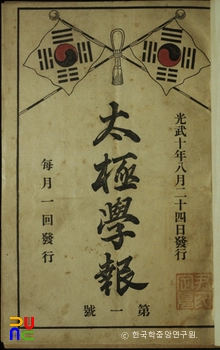 光武十年八月二十四日發行
太極學報
第一號
每月一回發行
© 한국학중앙연구원